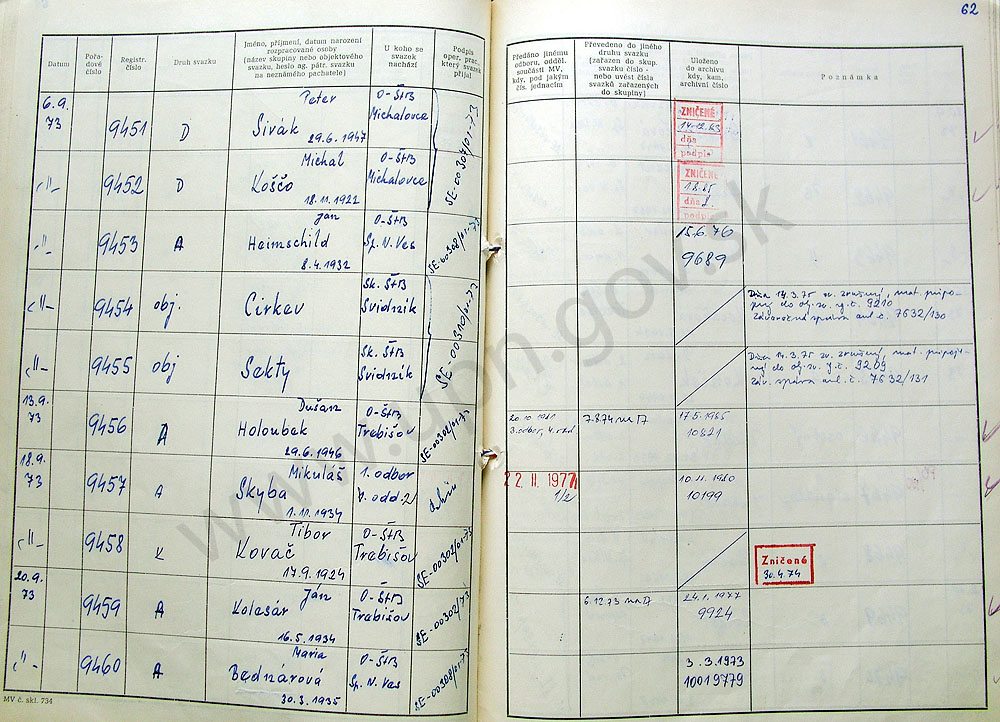 62
Datum
Pořa-
dové
číslo
Registr.
číslo
Druh svazku
Jméno, příjmení, datum narození
rozpracované osoby
(název skupiny nebo objektového
svazku, heslo ag. pátr. svazku
na neznámého pachatele)
U koho se
svazek
nachází
Podpis
oper. prac.,
který svazek
přijal
Předáno jinému
odboru, odděl.
součásti MV,
kdy, pod jakým
čís. jednacím
Převedeno do jiného
druhu svazku
(zařazen do skup.
svazku číslo -
nebo uvést čísla
svazků zařazených
do skupiny)
Uloženo
do archivu
kdy, kam,
archivní číslo
Poznámka
6.9.
73
9451
D
Peter
Sivák
29.6.1947
O-ŠtB
Michalovce
SE-00304/01-73
ZNIČENÉ
dňa
podpis
-"-
9452
D
Michal
Koščo
18.11.1922
O-ŠtB
Michalovce
ZNIČENÉ
dňa
podpis
-"-
9453
A
Ján
Heimschild
8.4.1932
O-ŠtB
Sp. N. Ves
SE-00308/01-73
15.6.76
9689
-"-
9454
obj.
Cirkev
Sk. ŠtB
Svidník
SE-00310/01-73
Dňa 14.3.75 sv. zrušený, mat. pripo-
jený do obj. sv. y.č. 9210
Záverečná správa aul. č. 7632/130
-"-
9455
obj
Sekty
Sk. ŠtB
Svidník
Dňa 14.3.75 sv. zrušený, mat. pripoje-
ný do obj. sv. y.č. 9209
Záv. správa aul. č. 7632/131
13.9.
73
9456
A
Dušan
Holoubek
29.6.1946
O-ŠtB
Trebišov
SE-00302/01-73
20.10.1981
3. odbor, 4. odd
7.8.74 na D
17.5.1985
10821
18.9.
73
9457
A
Mikuláš
Skyba
1.10.1934
1. odbor
V. odd. 2/
22.11.1977
1/2
10.11.1980
10199
-"-
9458
K
Tibor
Kovač
17.9.1924
O-ŠtB
Trebišov
SE-00302/01-73
Zničené
30.4.74
20.9.
73
9459
A
Ján
Kolesár
16.5.1934
O-ŠtB
Trebišov
SE-00302/73
6.12.73 na D
24.1.1977
9924
-"-
9460
A
Maria
Bednárová
30.3.1935
O-ŠtB
Sp. N. Ves
SE-00308/01-73
3.3.1973
10019779
MV č. skl. 734
www.upn.gov.sk